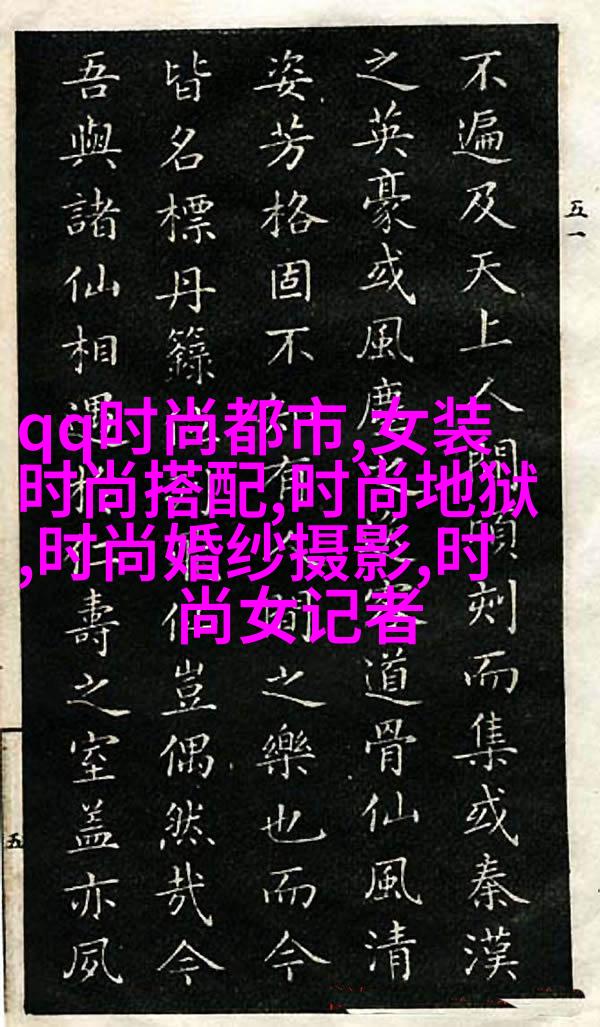 五一
不遍及天上人間頃刻而集或秦漢
之英豪或風塵客道骨仙風清
姿芳格固不知有間之樂也而今
皆名標丹籙列豈偶然哉今
吾與諸仙相遇於仁壽之室蓋亦夙
五
qq时尚都市,女装
时尚搭配,时尚地狱
,时尚婚纱摄影,时
尚女记者